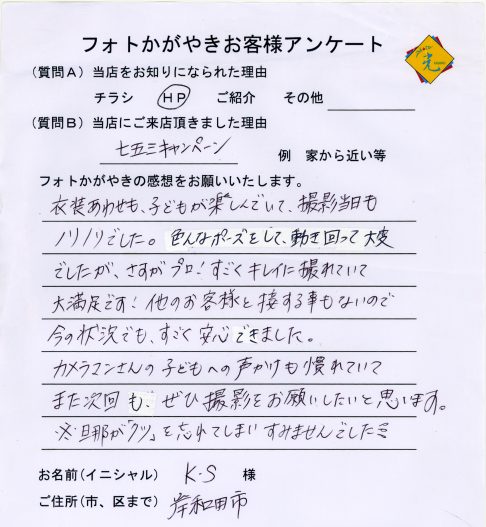 フォトかがやきお客様アンケート
光
(質問A)当店をお知りになられた理由
チラシ HP ご紹介 その他
(質問B)当店にご来店頂きました理由
七五三キャンペーン 例 家から近い等
フォトかがやきの感想をお願いいたします。
衣装あわせも、子どもが楽しんでいて、撮影当日も
ノリノリでした。色んなポーズをして、動き回って大変
でしたが、さすがプロ!すごくキレイに撮れていて
大満足です!他のお客様と接する事もないので
今の状況でも、すごく安心できました。
カメラマンさんの子どもへの声かけも慣れていて
また次回も、ぜひ撮影をお願いしたいと思います。
※旦那が「クツ」を忘れてしまいすみませんでした
お名前(イニシャル) K・S 様
ご住所(市、区まで) 岸和田市